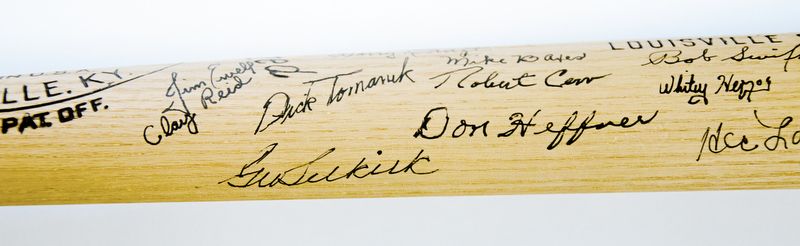 LLE. KY.
PAT. OFF.
Jim
Clay Reid
Dick Tomanek
Mike
Robert Cerv
LOUISVILLE
Bob Swift
Whitey Herzog
Don Heffner
Geo Selkirk